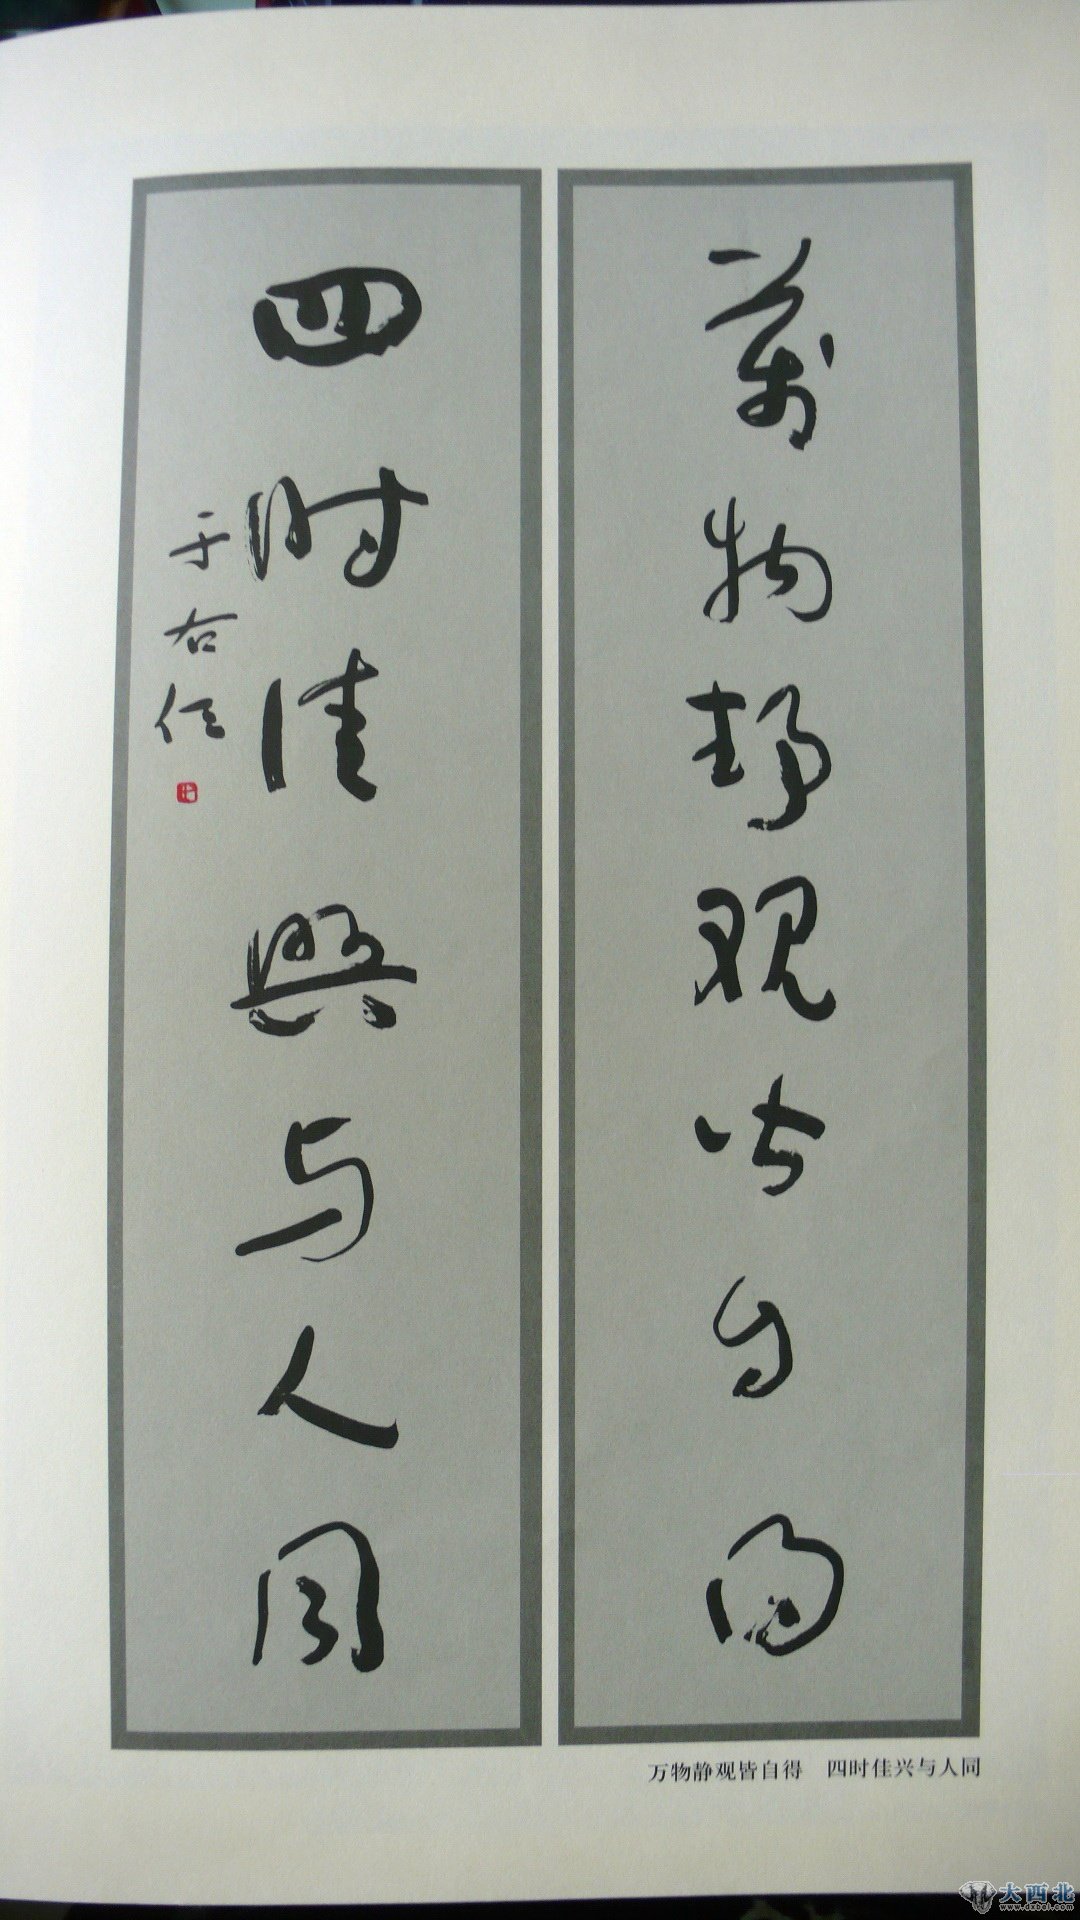 萬物静观皆自得
四时佳興与人同
于右任
万物静观皆自得 四时佳兴与人同
大西北
www.dxbei.com